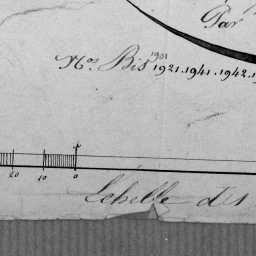 Par
1901
Nos. Bis 1921.1941.1942.19
20 10 0
Echelle des